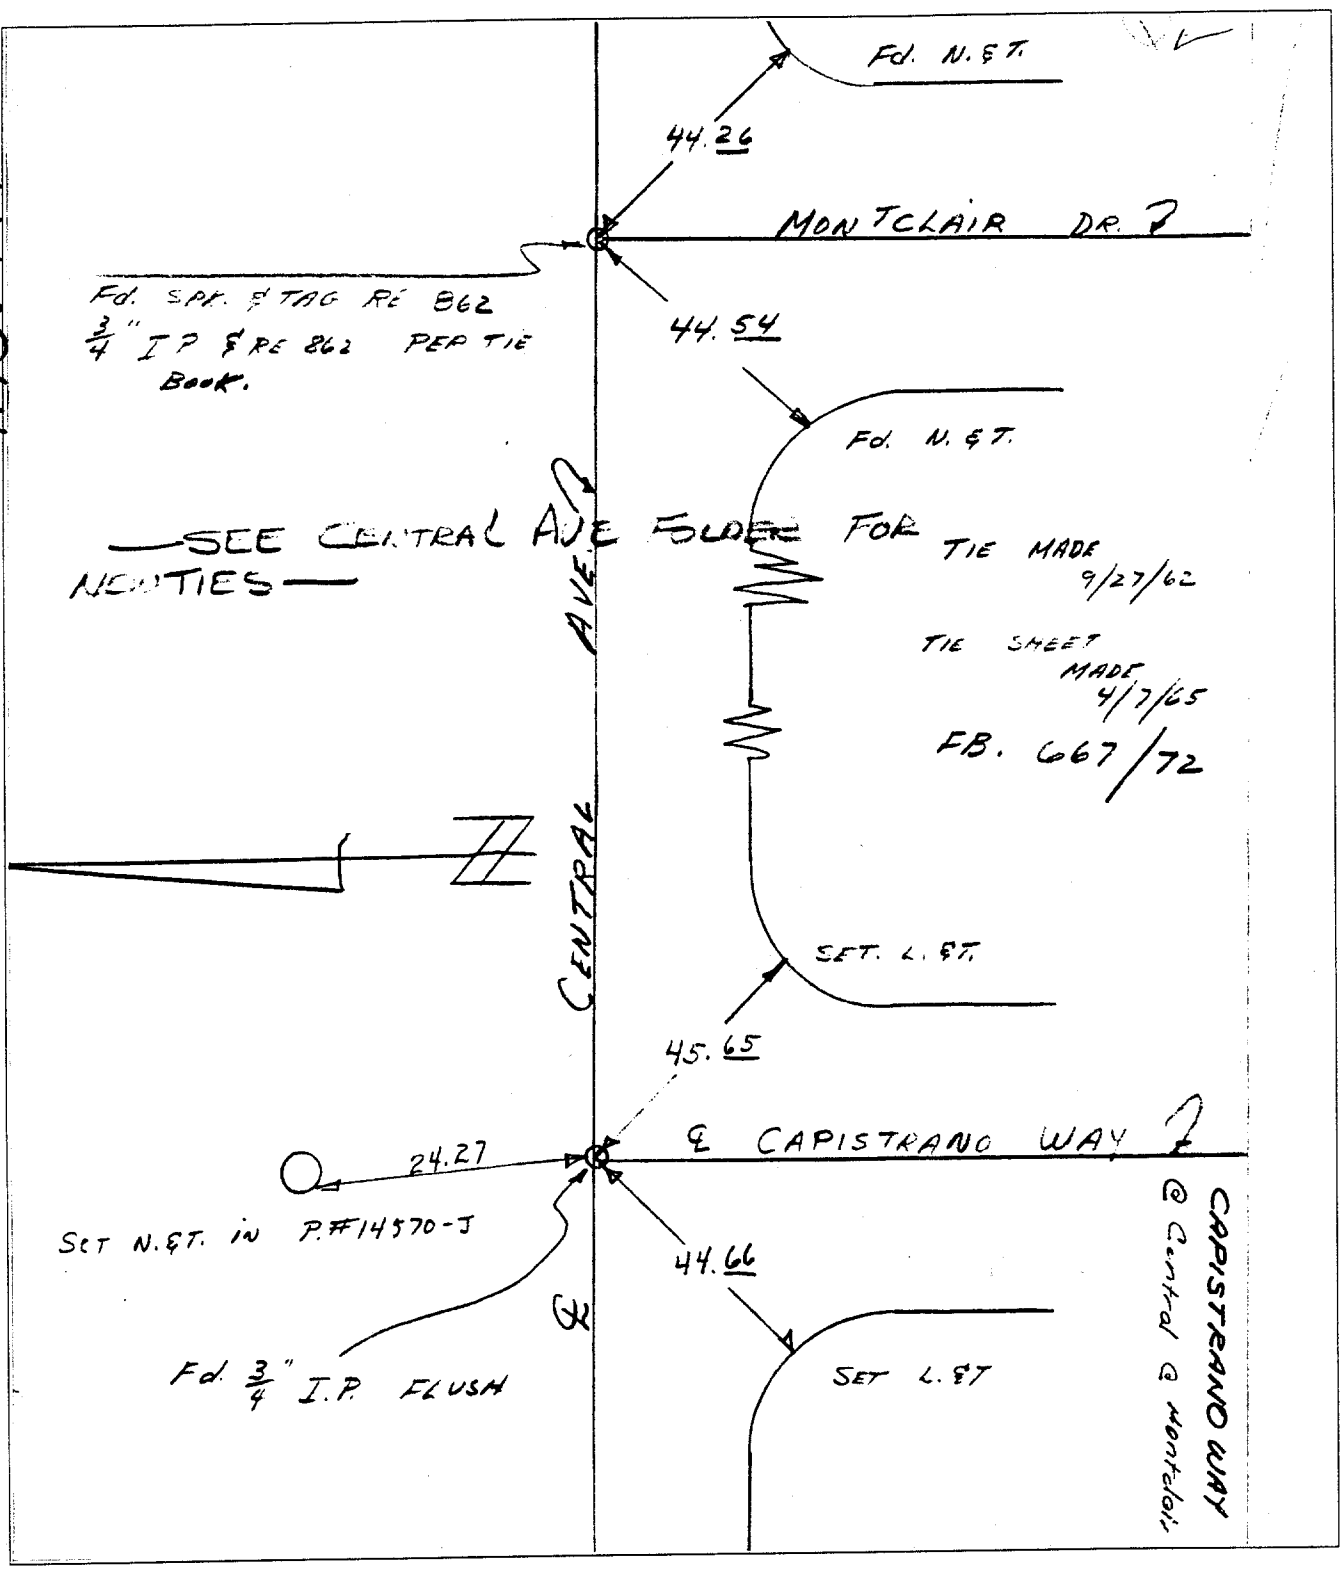 Fd. N. & T.
44.26
MONTCLAIR DR.
Fd. SPK. & TAG RE 862
3/4" I P & RE 862 PER TIE
BOOK.
44.54
Fd. N. & T.
— SEE CENTRAL AVE FOLDER FOR
NEW TIES —
TIE MADE
9/27/62
TIE SHEET
MADE
4/7/65
FB. 667/72
℄ CENTRAL AVE.
N
SET. L. & T.
45.65
℄ CAPISTRANO WAY
24.27
SET N. & T. in P.#14570-J
44.66
Fd. 3/4" I.P. FLUSH
SET L. & T
CAPISTRANO WAY
@ Central @ Montclair